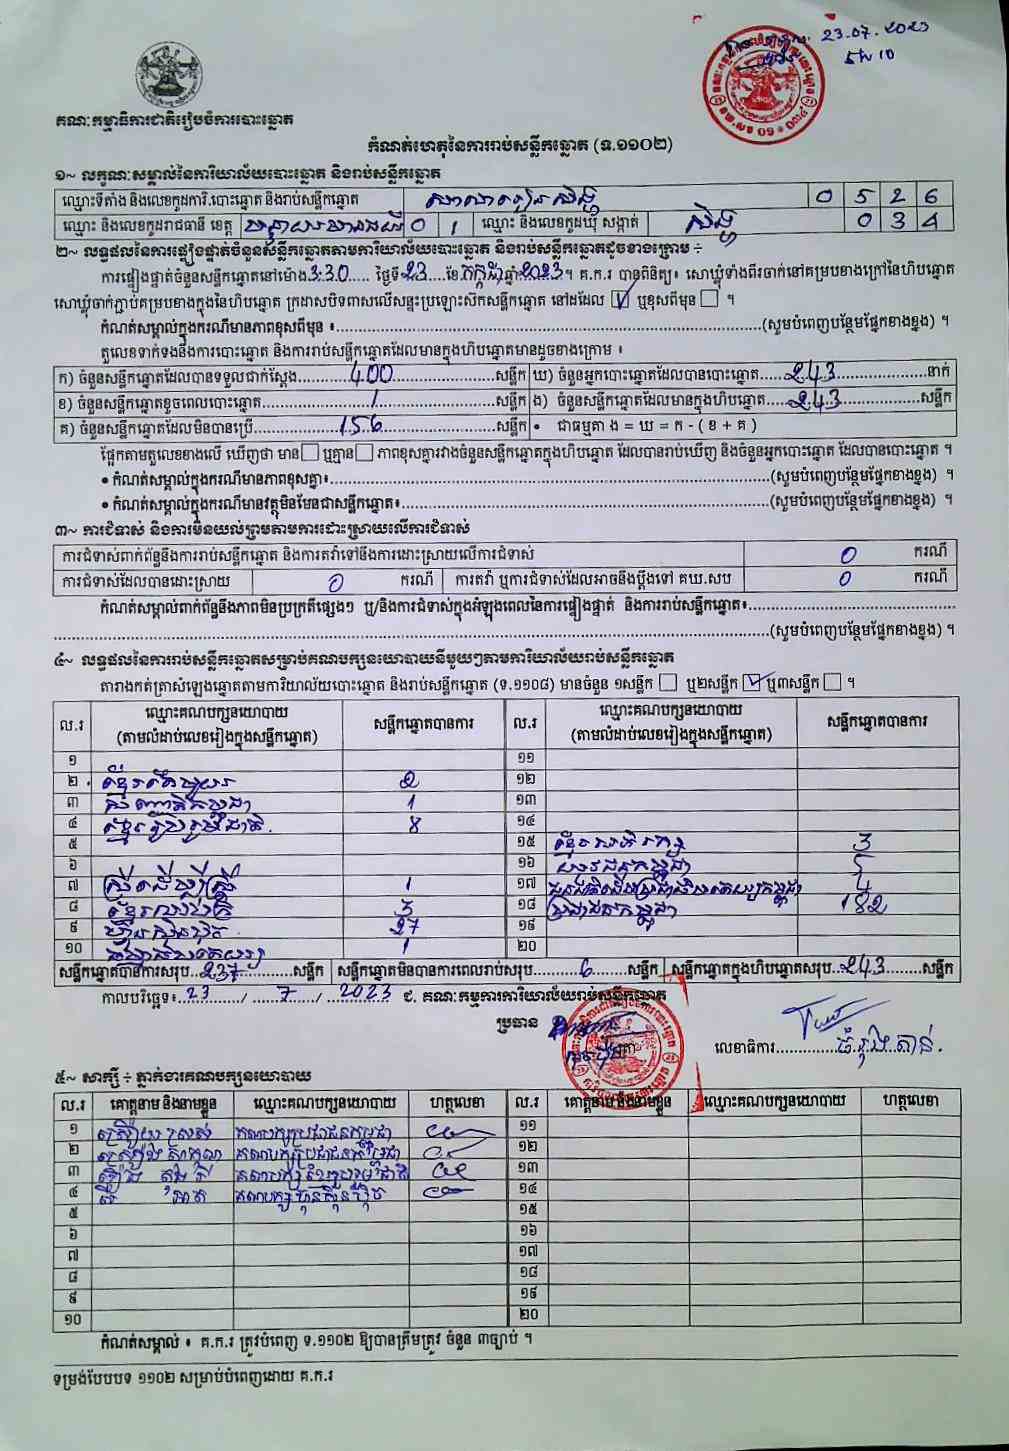 23.07.2023
គណៈកម្មាធិការជាតិរៀបចំការបោះឆ្នោត
កំណត់ហេតុនៃការរាប់សន្លឹកឆ្នោត (ទ.១១០២)
១~ លក្ខណៈសម្គាល់នៃការិយាល័យបោះឆ្នោត និងរាប់សន្លឹកឆ្នោត
ឈ្មោះទីតាំង និងលេខកូដការិ.បោះឆ្នោត និងរាប់សន្លឹកឆ្នោត សាលារៀន 0 5 2 6
ឈ្មោះ និងលេខកូដរាជធានី ខេត្ត បន្ទាយមានជ័យ 0 1 ឈ្មោះ និងលេខកូដឃុំ សង្កាត់ 0 3 4
២~ លទ្ធផលនៃការផ្ទៀងផ្ទាត់ចំនួនសន្លឹកឆ្នោតតាមការិយាល័យបោះឆ្នោត និងរាប់សន្លឹកឆ្នោតដូចខាងក្រោម ÷
ការផ្ទៀងផ្ទាត់ចំនួនសន្លឹកឆ្នោតនៅម៉ោង 3:30 ថ្ងៃទី 23 ខែ កក្កដា ឆ្នាំ 2023 ។ គ.ក.រ បានពិនិត្យ៖ សោឃ្លុំទាំងពីរចាក់នៅគម្របខាងក្រៅនៃហិបឆ្នោត
សោឃ្លុំចាក់ភ្ជាប់គម្របខាងក្នុងនៃហិបឆ្នោត ក្រដាសបិទពាសលើសន្ទះប្រឡោះសិកសន្លឹកឆ្នោត នៅដដែល ☑ ឬខុសពីមុន ☐ ។
កំណត់សម្គាល់ក្នុងករណីមានភាពខុសពីមុន ៖ (សូមបំពេញបន្ថែមផ្នែកខាងខ្នង) ។
តួលេខទាក់ទងនឹងការបោះឆ្នោត និងការរាប់សន្លឹកឆ្នោតដែលមានក្នុងហិបឆ្នោតមានដូចខាងក្រោម ៖
ក) ចំនួនសន្លឹកឆ្នោតដែលបានទទួលជាក់ស្តែង 400 សន្លឹក ឃ) ចំនួនអ្នកបោះឆ្នោតដែលបានបោះឆ្នោត 243 នាក់
ខ) ចំនួនសន្លឹកឆ្នោតខូចពេលបោះឆ្នោត 1 សន្លឹក ង) ចំនួនសន្លឹកឆ្នោតដែលមានក្នុងហិបឆ្នោត 243 សន្លឹក
គ) ចំនួនសន្លឹកឆ្នោតដែលមិនបានប្រើ 156 សន្លឹក • ជាធម្មតា ង = ឃ = ក - ( ខ + គ )
ផ្អែកតាមតួលេខខាងលើ ឃើញថា មាន ☐ ឬគ្មាន ☐ ភាពខុសគ្នារវាងចំនួនសន្លឹកឆ្នោតក្នុងហិបឆ្នោត ដែលបានរាប់ឃើញ និងចំនួនអ្នកបោះឆ្នោត ដែលបានបោះឆ្នោត ។
• កំណត់សម្គាល់ក្នុងករណីមានភាពខុសគ្នា៖ (សូមបំពេញបន្ថែមផ្នែកខាងខ្នង) ។
• កំណត់សម្គាល់ក្នុងករណីមានវត្ថុមិនមែនជាសន្លឹកឆ្នោត៖ (សូមបំពេញបន្ថែមផ្នែកខាងខ្នង) ។
៣~ ការជំទាស់ និងការមិនយល់ព្រមតាមការដោះស្រាយលើការជំទាស់
ការជំទាស់ពាក់ព័ន្ធនឹងការរាប់សន្លឹកឆ្នោត និងការតវ៉ាទៅនឹងការដោះស្រាយលើការជំទាស់ 0 ករណី
ការជំទាស់ដែលបានដោះស្រាយ 0 ករណី ការតវ៉ា ឬការជំទាស់ដែលអាចនឹងប្តឹងទៅ គឃ.សប 0 ករណី
កំណត់សម្គាល់ពាក់ព័ន្ធនឹងភាពមិនប្រក្រតីផ្សេងៗ ឬ/និងការជំទាស់ក្នុងអំឡុងពេលនៃការផ្ទៀងផ្ទាត់ និងការរាប់សន្លឹកឆ្នោត៖
(សូមបំពេញបន្ថែមផ្នែកខាងខ្នង) ។
៤~ លទ្ធផលនៃការរាប់សន្លឹកឆ្នោតសម្រាប់គណបក្សនយោបាយនីមួយៗតាមការិយាល័យរាប់សន្លឹកឆ្នោត
តារាងកត់ត្រាសំឡេងឆ្នោតតាមការិយាល័យបោះឆ្នោត និងរាប់សន្លឹកឆ្នោត (ទ.១១០៨) មានចំនួន ១សន្លឹក ☐ ឬ២សន្លឹក ☑ ឬ៣សន្លឹក ☐ ។
ល.រ ឈ្មោះគណបក្សនយោបាយ (តាមលំដាប់លេខរៀងក្នុងសន្លឹកឆ្នោត) សន្លឹកឆ្នោតបានការ ល.រ ឈ្មោះគណបក្សនយោបាយ (តាមលំដាប់លេខរៀងក្នុងសន្លឹកឆ្នោត) សន្លឹកឆ្នោតបានការ
១ ១១
២ ខ្មែរតែមួយ 2 ១២
៣ សញ្ជាតិកម្ពុជា 1 ១៣
៤ ខ្មែររួបរួមជាតិ 8 ១៤
៥ ១៥ 3
៦ ១៦ យុវជនកម្ពុជា 5
៧ ស្រីដើម្បីស្ត្រី 1 ១៧ 4
៨ 3 ១៨ ប្រជាជនកម្ពុជា 182
៩ ហ៊្វុនស៊ិនប៉ិច 27 ១៩
១០ ធម្មាធិបតេយ្យ 1 ២០
សន្លឹកឆ្នោតបានការសរុប 237 សន្លឹក សន្លឹកឆ្នោតមិនបានការពេលរាប់សរុប 6 សន្លឹក សន្លឹកឆ្នោតក្នុងហិបឆ្នោតសរុប 243 សន្លឹក
កាលបរិច្ឆេទ៖ 23 / 7 / 2023 ជ. គណៈកម្មការការិយាល័យរាប់សន្លឹកឆ្នោត
ប្រធាន
លេខាធិការ
៥~ សាក្សី ÷ ភ្នាក់ងារគណបក្សនយោបាយ
ល.រ គោត្តនាម និងនាមខ្លួន ឈ្មោះគណបក្សនយោបាយ ហត្ថលេខា ល.រ គោត្តនាម និងនាមខ្លួន ឈ្មោះគណបក្សនយោបាយ ហត្ថលេខា
១ គណបក្សប្រជាជនកម្ពុជា ១១
២ គណបក្សប្រជាជនកម្ពុជា ១២
៣ គណបក្សខ្មែររួបរួមជាតិ ១៣
៤ គណបក្សហ៊្វុនស៊ិនប៉ិច ១៤
៥ ១៥
៦ ១៦
៧ ១៧
៨ ១៨
៩ ១៩
១០ ២០
កំណត់សម្គាល់ ៖ គ.ក.រ ត្រូវបំពេញ ទ.១១០២ ឱ្យបានត្រឹមត្រូវ ចំនួន ៣ច្បាប់ ។
ទម្រង់បែបបទ ១១០២ សម្រាប់បំពេញដោយ គ.ក.រ